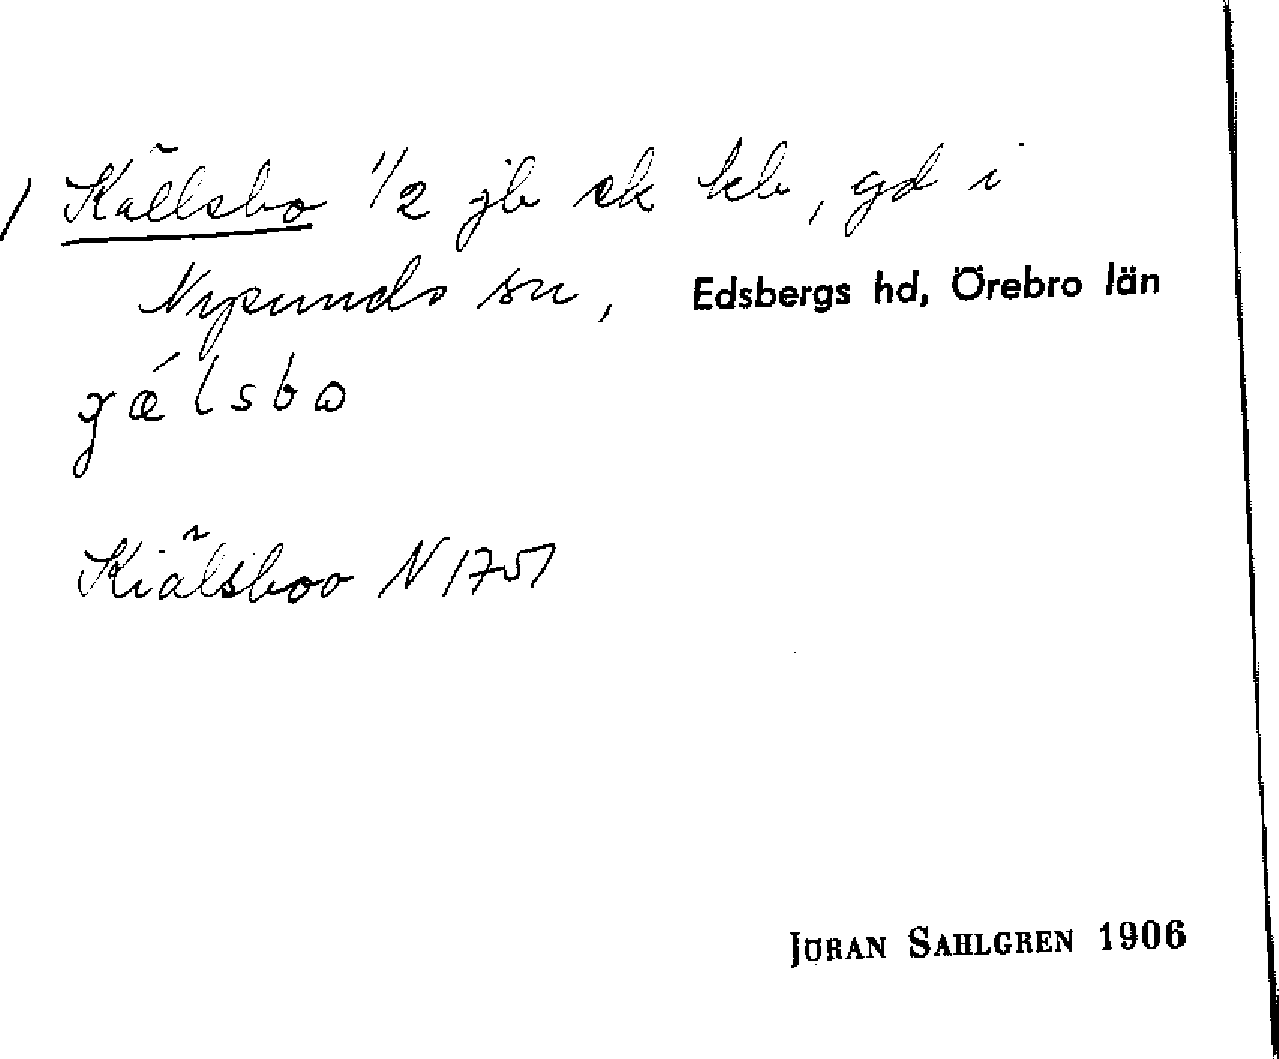 / Källsbo 1/2 jb sk kb, gd i
Nysunds sn, Edsbergs hd, Örebro län
Kiälsboo N 1751
JÖRAN SAHLGREN 1906